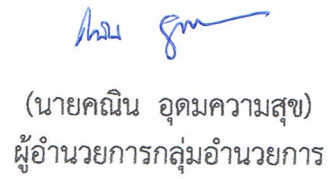 (นายคณิน อุดมความสุข)
ผู้อำนวยการกลุ่มอำนวยการ